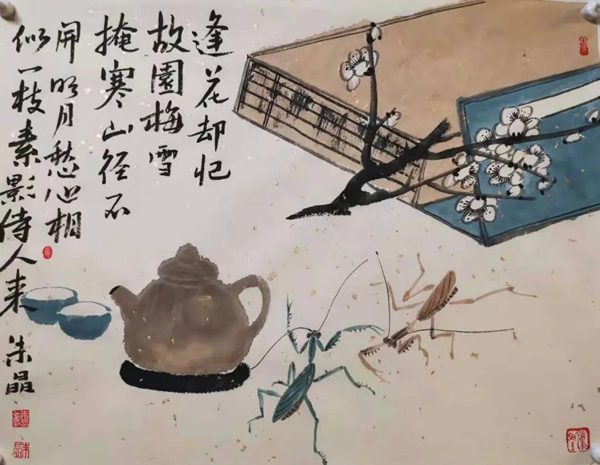 逢花却忆
故園梅雪
掩寒山径不
開明月愁心相
似一枝素影待人来
朱晶